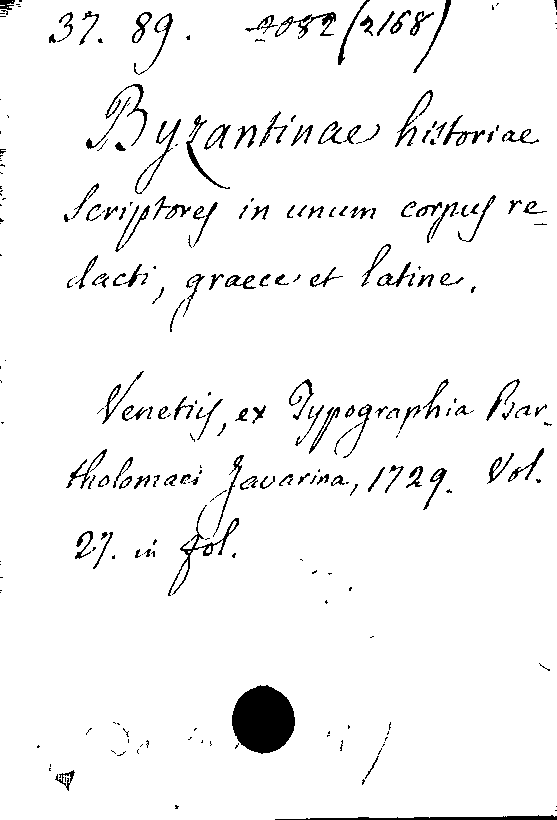 37. 89. 2082 (2168)
Byzantinae historiae
Scriptores in unum corpus re-
dacti, graece et latine.
Venetiis, ex Typographia Bar-
tholomaei Javarina, 1729. Vol.
27. in fol.